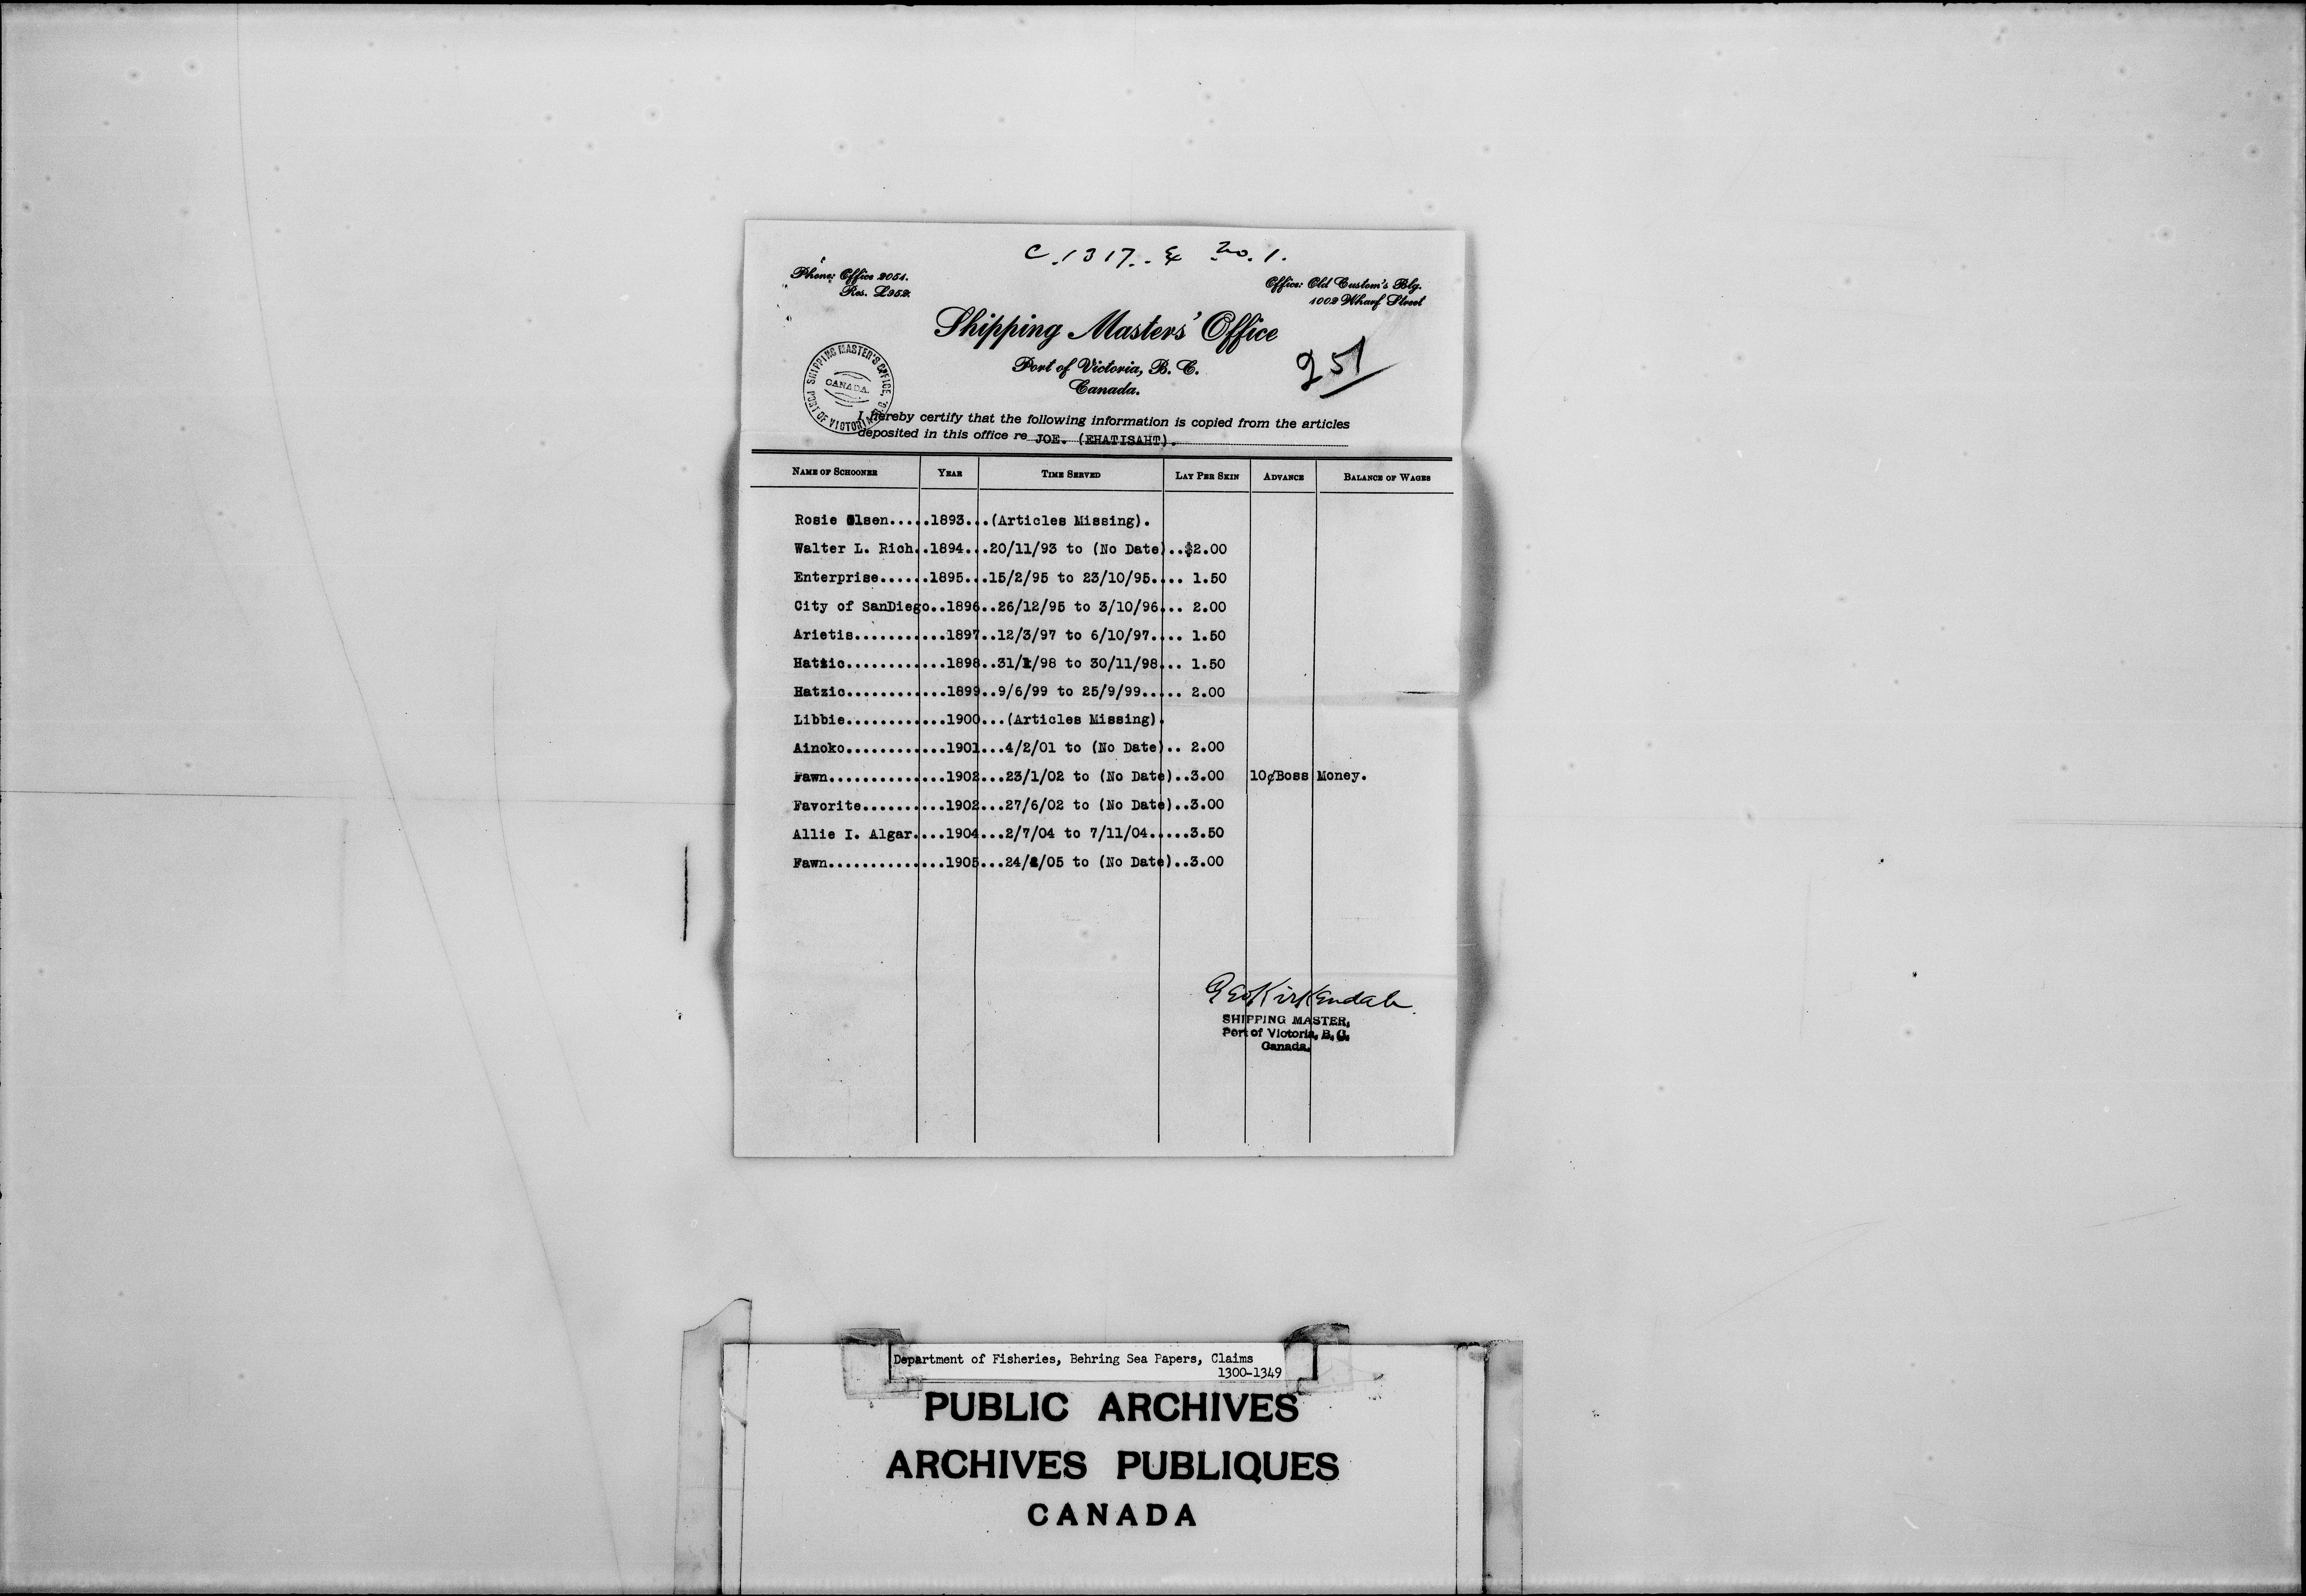 C. 1317. & No. 1.
Phone: Office 2051.
Res. L952.
Office: Old Custom's Blg.
1002 Wharf Street
Shipping Masters' Office
Port of Victoria, B. C.
Canada.
251
SHIPPING MASTER'S OFFICE,
CANADA.
PORT OF VICTORIA
I hereby certify that the following information is copied from the articles
deposited in this office re JOE. (EHATISAHT).
NAME OF SCHOONER YEAR TIME SERVED LAY PER SKIN ADVANCE BALANCE OF WAGES
Rosie Olsen.....1893...(Articles Missing).
Walter L. Rich..1894...20/11/93 to (No Date)..$2.00
Enterprise......1895...15/2/95 to 23/10/95.... 1.50
City of SanDiego..1896..26/12/95 to 3/10/96... 2.00
Arietis...........1897..12/3/97 to 6/10/97.... 1.50
Hatzic............1898..31/1/98 to 30/11/98... 1.50
Hatzic............1899..9/6/99 to 25/9/99..... 2.00
Libbie............1900...(Articles Missing).
Ainoko............1901...4/2/01 to (No Date).. 2.00
Fawn..............1902...23/1/02 to (No Date)..3.00 10¢Boss Money.
Favorite..........1902...27/6/02 to (No Date)..3.00
Allie I. Algar....1904...2/7/04 to 7/11/04.....3.50
Fawn..............1905...24/ /05 to (No Date)..3.00
Geo Kirkendale
SHIPPING MASTER,
Port of Victoria, B. C.
Canada.
Department of Fisheries, Behring Sea Papers, Claims
1300-1349
PUBLIC ARCHIVES
ARCHIVES PUBLIQUES
CANADA